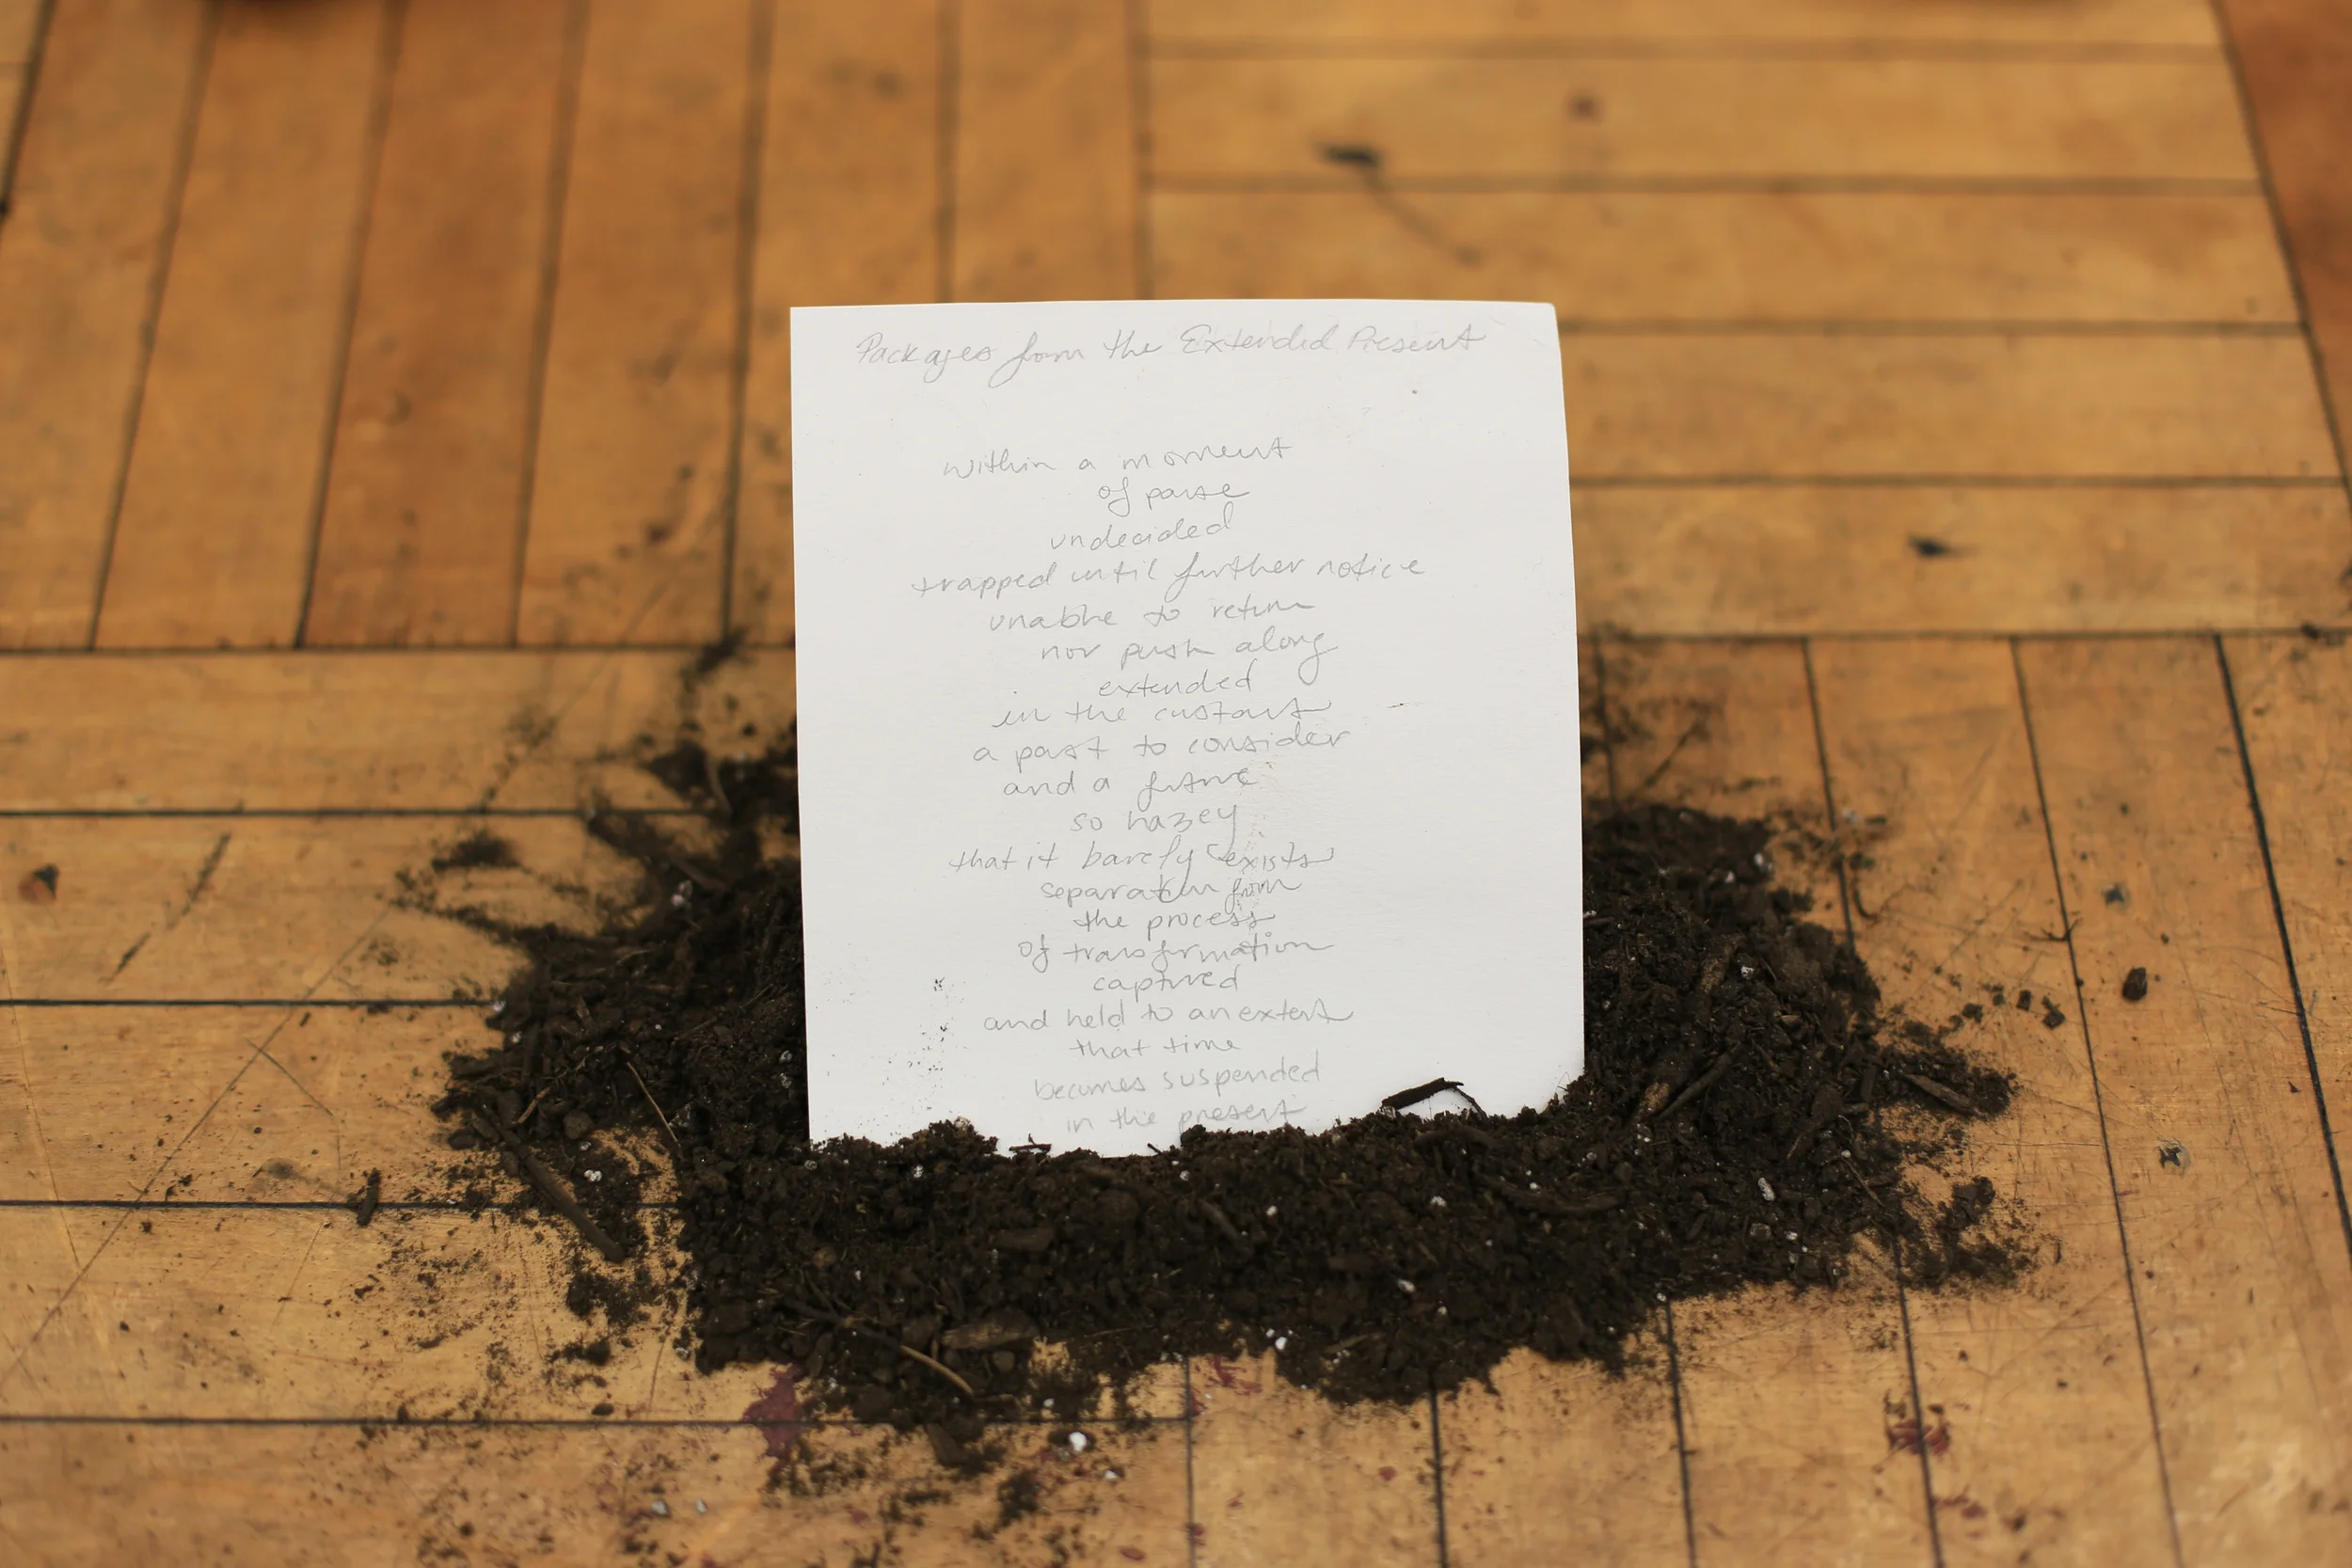 Packages from the Extended Present
within a moment
of pause
undecided
trapped until further notice
unable to return
nor push along
extended
in the
a past to consider
and a future
so hazey
that it barely exists
separation from
the process
of transformation
captured
and held to an extent
that time
becomes suspended
in the present